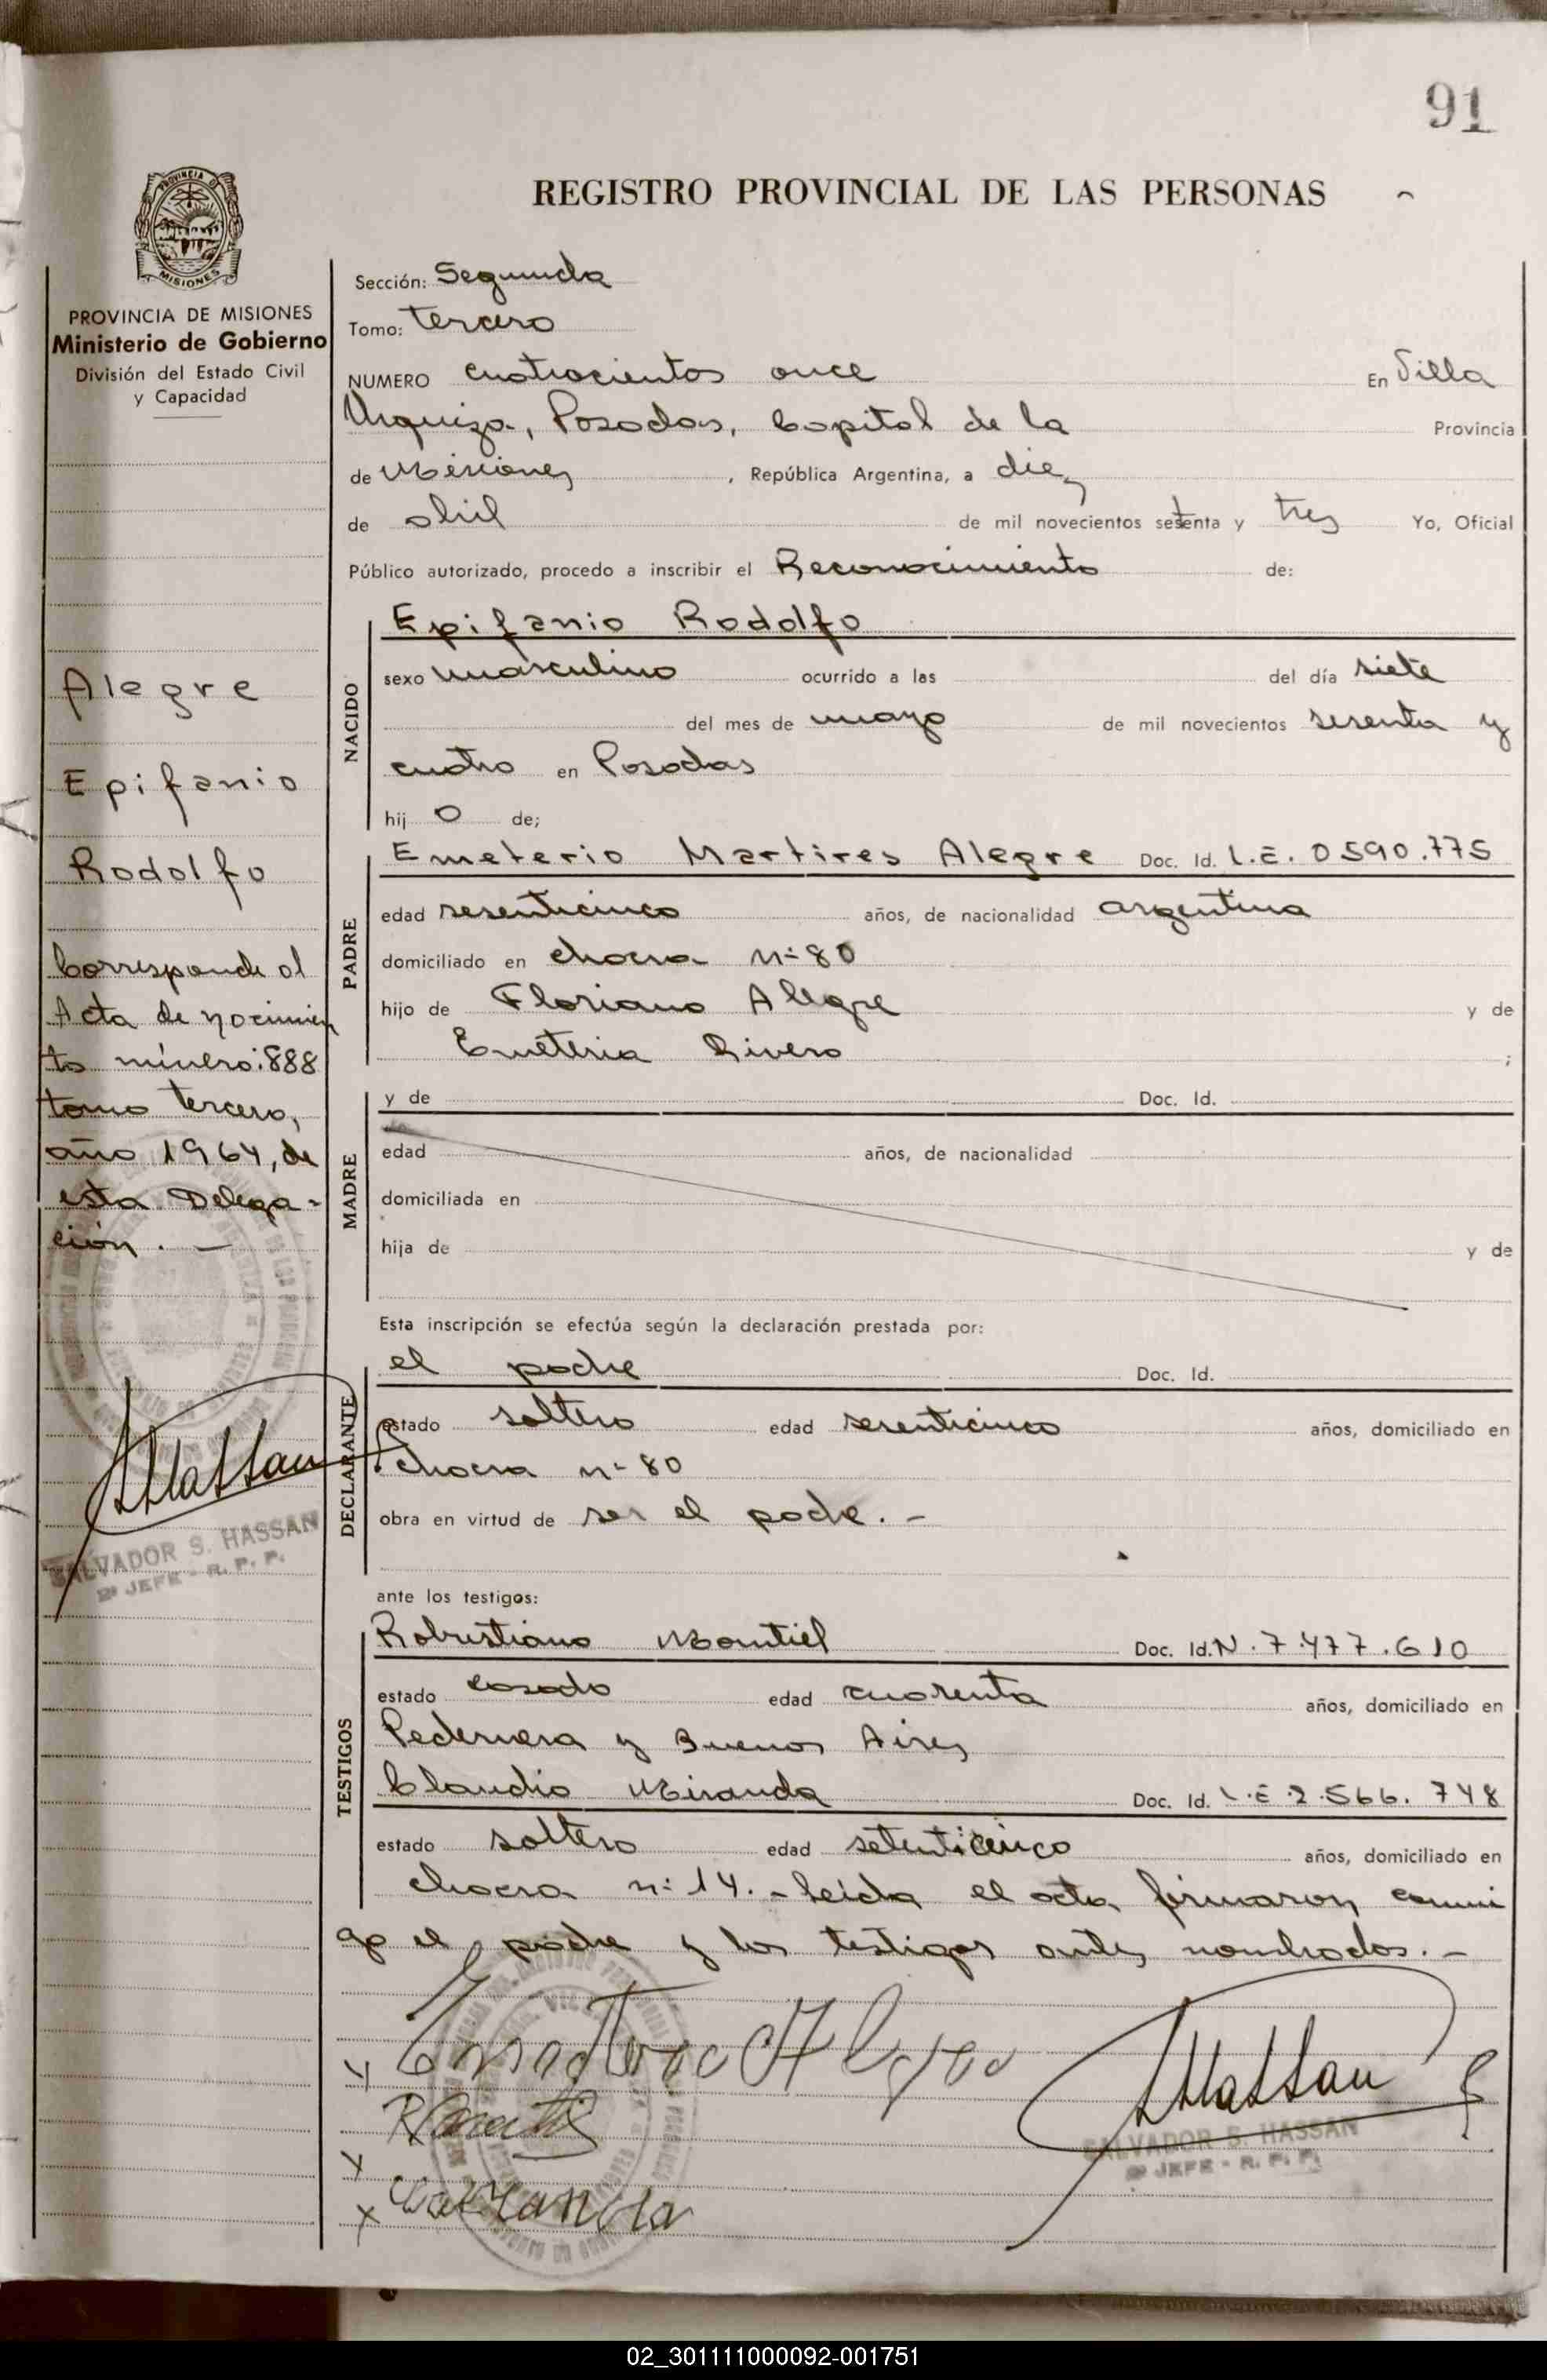 91
REGISTRO PROVINCIAL DE LAS PERSONAS
PROVINCIA DE MISIONES
Ministerio de Gobierno
División del Estado Civil
y Capacidad
Alegre
Epifanio
Rodolfo
Corresponde al
Acta de nacimien
to número: 888
tomo tercero,
año 1964, de
esta Delega-
ción. -
SALVADOR S. HASSAN
2º JEFE - R. P. P.
Sección: Segunda
Tomo: tercero
NUMERO cuatrocientos once En Villa
Urquiza, Posadas, Capital de la Provincia
de Misiones, República Argentina, a diez
de abril de mil novecientos setenta y tres Yo, Oficial
Público autorizado, procedo a inscribir el Reconocimiento de:
NACIDO
Epifanio Rodolfo
sexo masculino ocurrido a las del día siete
del mes de mayo de mil novecientos sesenta y
cuatro en Posadas
hijo de;
PADRE
Emeterio Martires Alegre Doc. Id. L.E. 0590.775
edad sesenticinco años, de nacionalidad argentina
domiciliado en chacra nº 80
hijo de Floriano Alegre y de
Emeteria Rivero ;
MADRE
y de Doc. Id.
edad años, de nacionalidad
domiciliada en
hija de y de
Esta inscripción se efectúa según la declaración prestada por:
DECLARANTE
el padre Doc. Id.
estado soltero edad sesenticinco años, domiciliado en
chacra nº 80
obra en virtud de ser el padre. -
ante los testigos:
TESTIGOS
Robustiano Montiel Doc. Id. N. 7.477.610
estado casado edad cuarenta años, domiciliado en
Pedernera y Buenos Aires
Claudio Miranda Doc. Id. L.E 2.566.748
estado soltero edad setenticinco años, domiciliado en
chacra nº 14. - Leída el acta, firmaron conmi
go el padre y los testigos antes nombrados. -
SALVADOR S. HASSAN
2º JEFE - R. P. P.
02_301111000092-001751